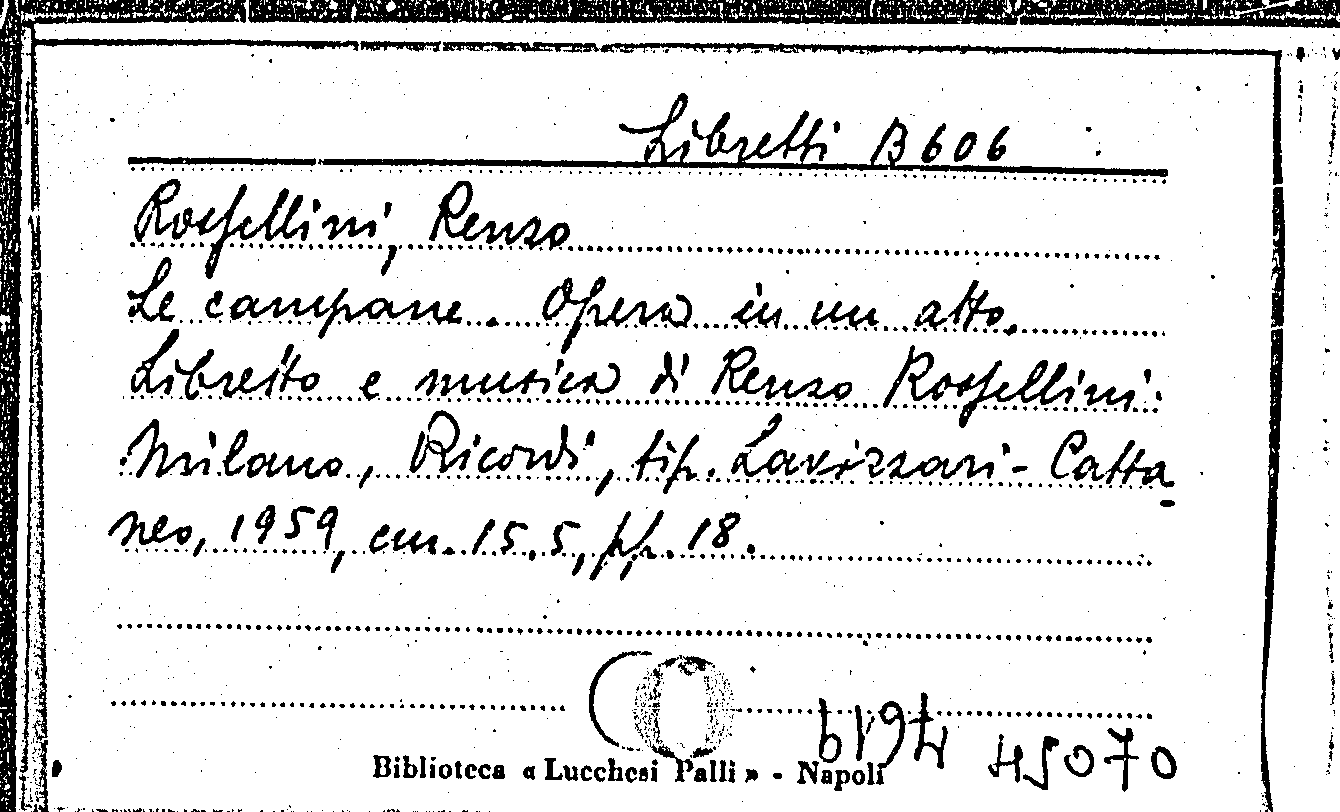 Libretti B 606
Rossellini, Renzo
Le campane. Opera in un atto.
Libretto e musica di Renzo Rossellini.
Milano, Ricordi, tip. Lavizzari-Catta
neo, 1959, cm. 15.5, pp. 18.
45070
Biblioteca « Lucchesi Palli » - Napoli